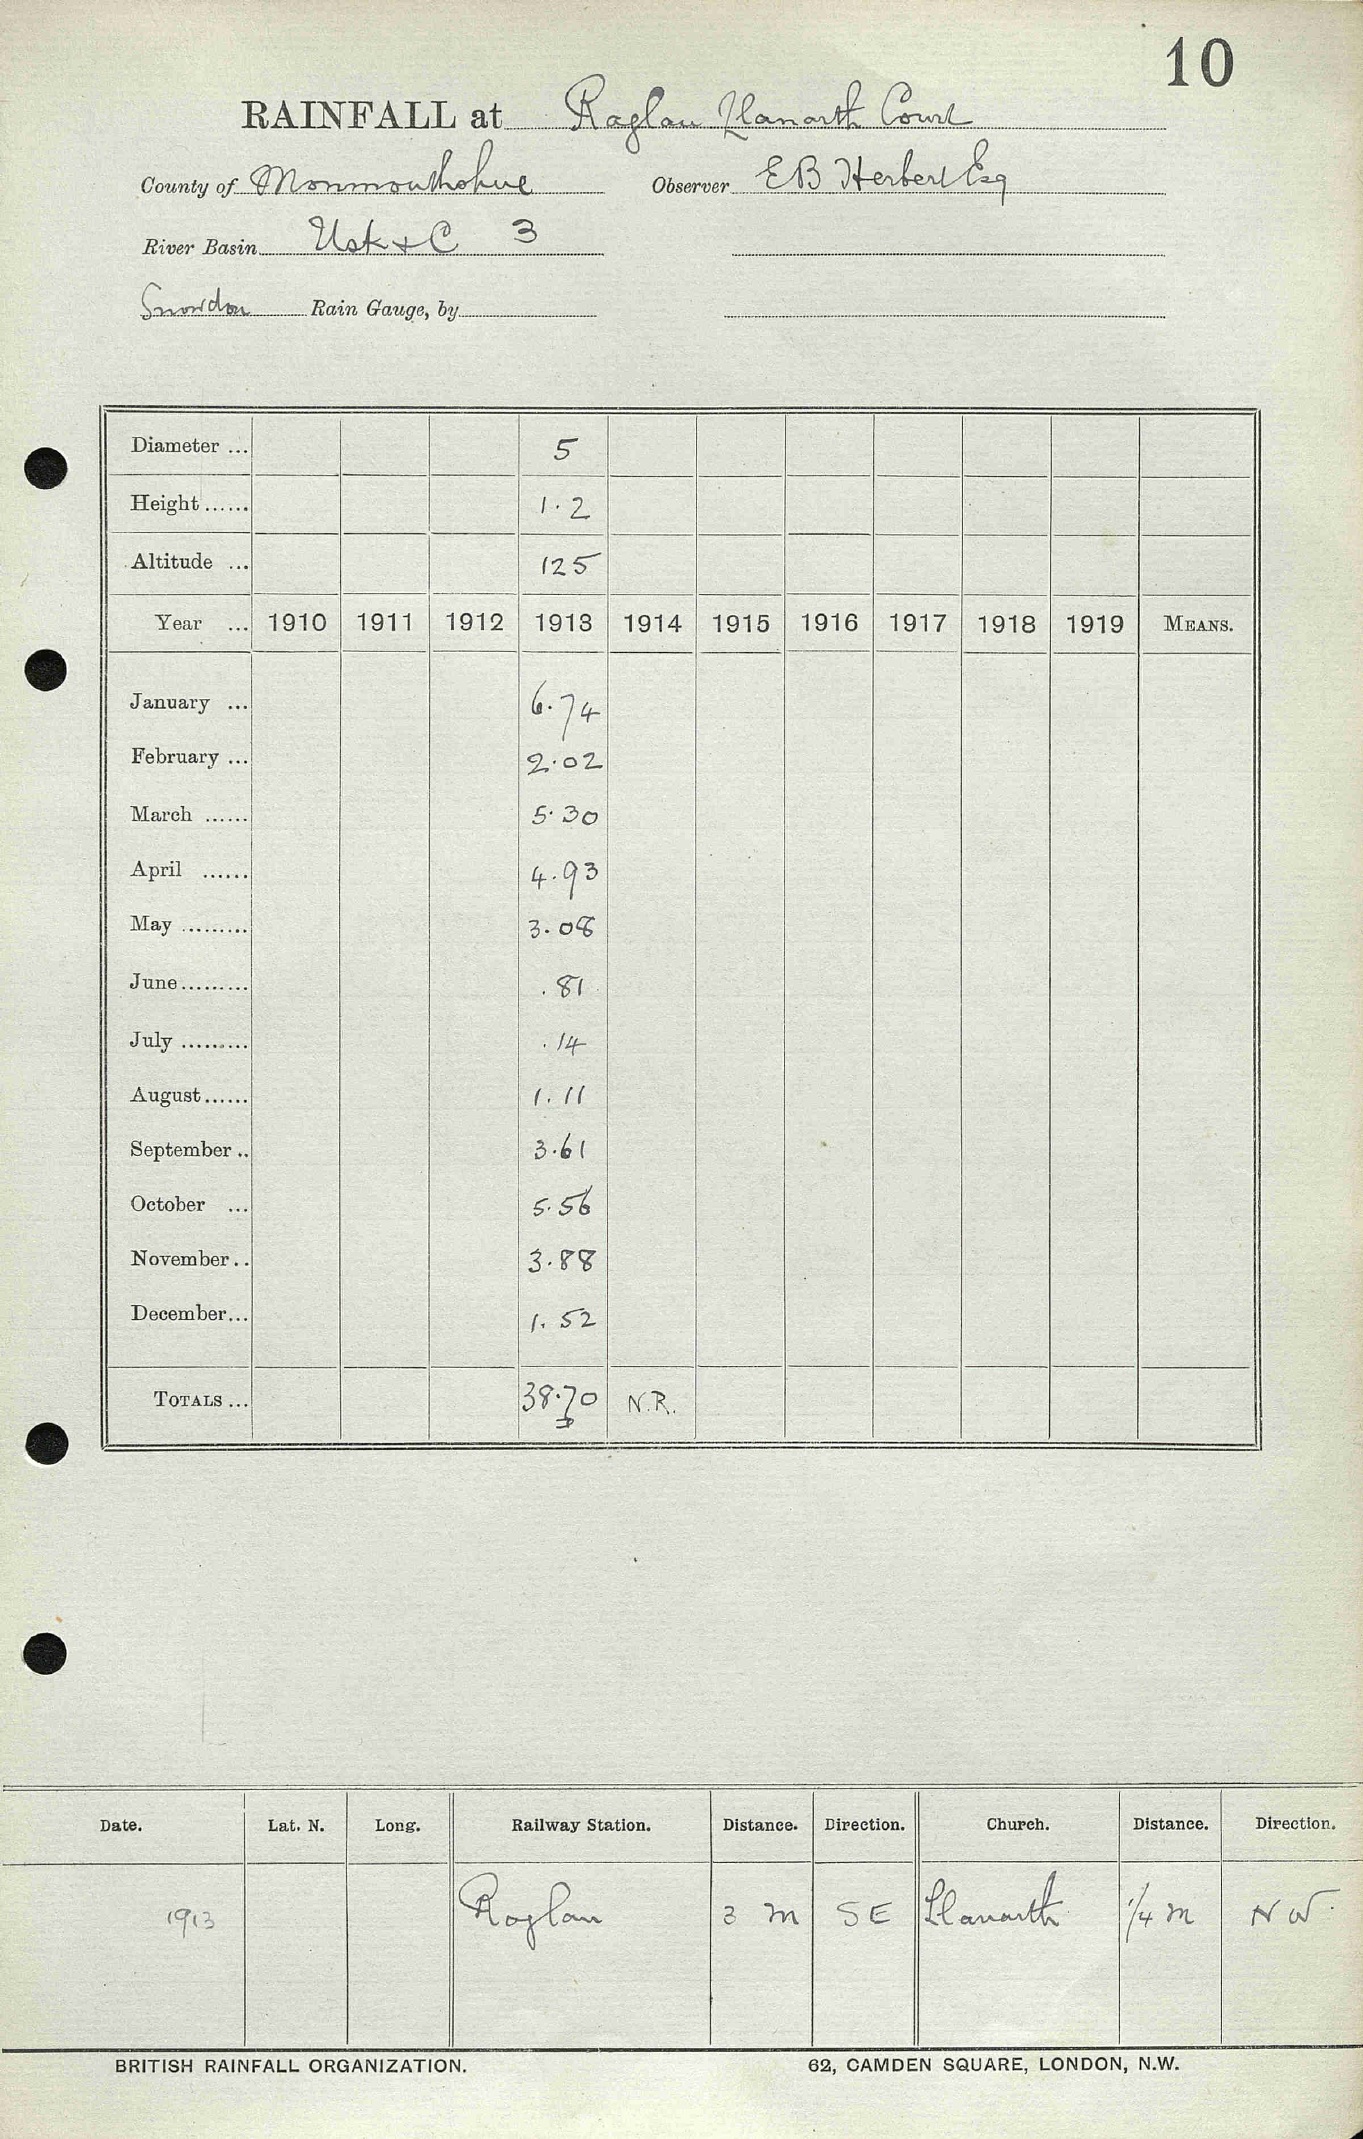 10
RAINFALL at Raglan Llanarth Court
County of Monmouthshire Observer E B Herbert Esq
River Basin Usk & C 3
Snowdon Rain Gauge, by
Diameter ... 5
Height ...... 1.2
Altitude ... 125
Year ... 1910 1911 1912 1913 1914 1915 1916 1917 1918 1919 MEANS.
January ... 6.74
February ... 2.02
March ...... 5.30
April ...... 4.93
May ......... 3.08
June ......... .81
July ......... .14
August ...... 1.11
September .. 3.61
October ... 5.56
November .. 3.88
December ... 1.52
TOTALS ... 38.70 N.R.
Date. Lat. N. Long. Railway Station. Distance. Direction. Church. Distance. Direction.
1913 Raglan 3 m SE Llanarth 1/4 m NW.
BRITISH RAINFALL ORGANIZATION. 62, CAMDEN SQUARE, LONDON, N.W.